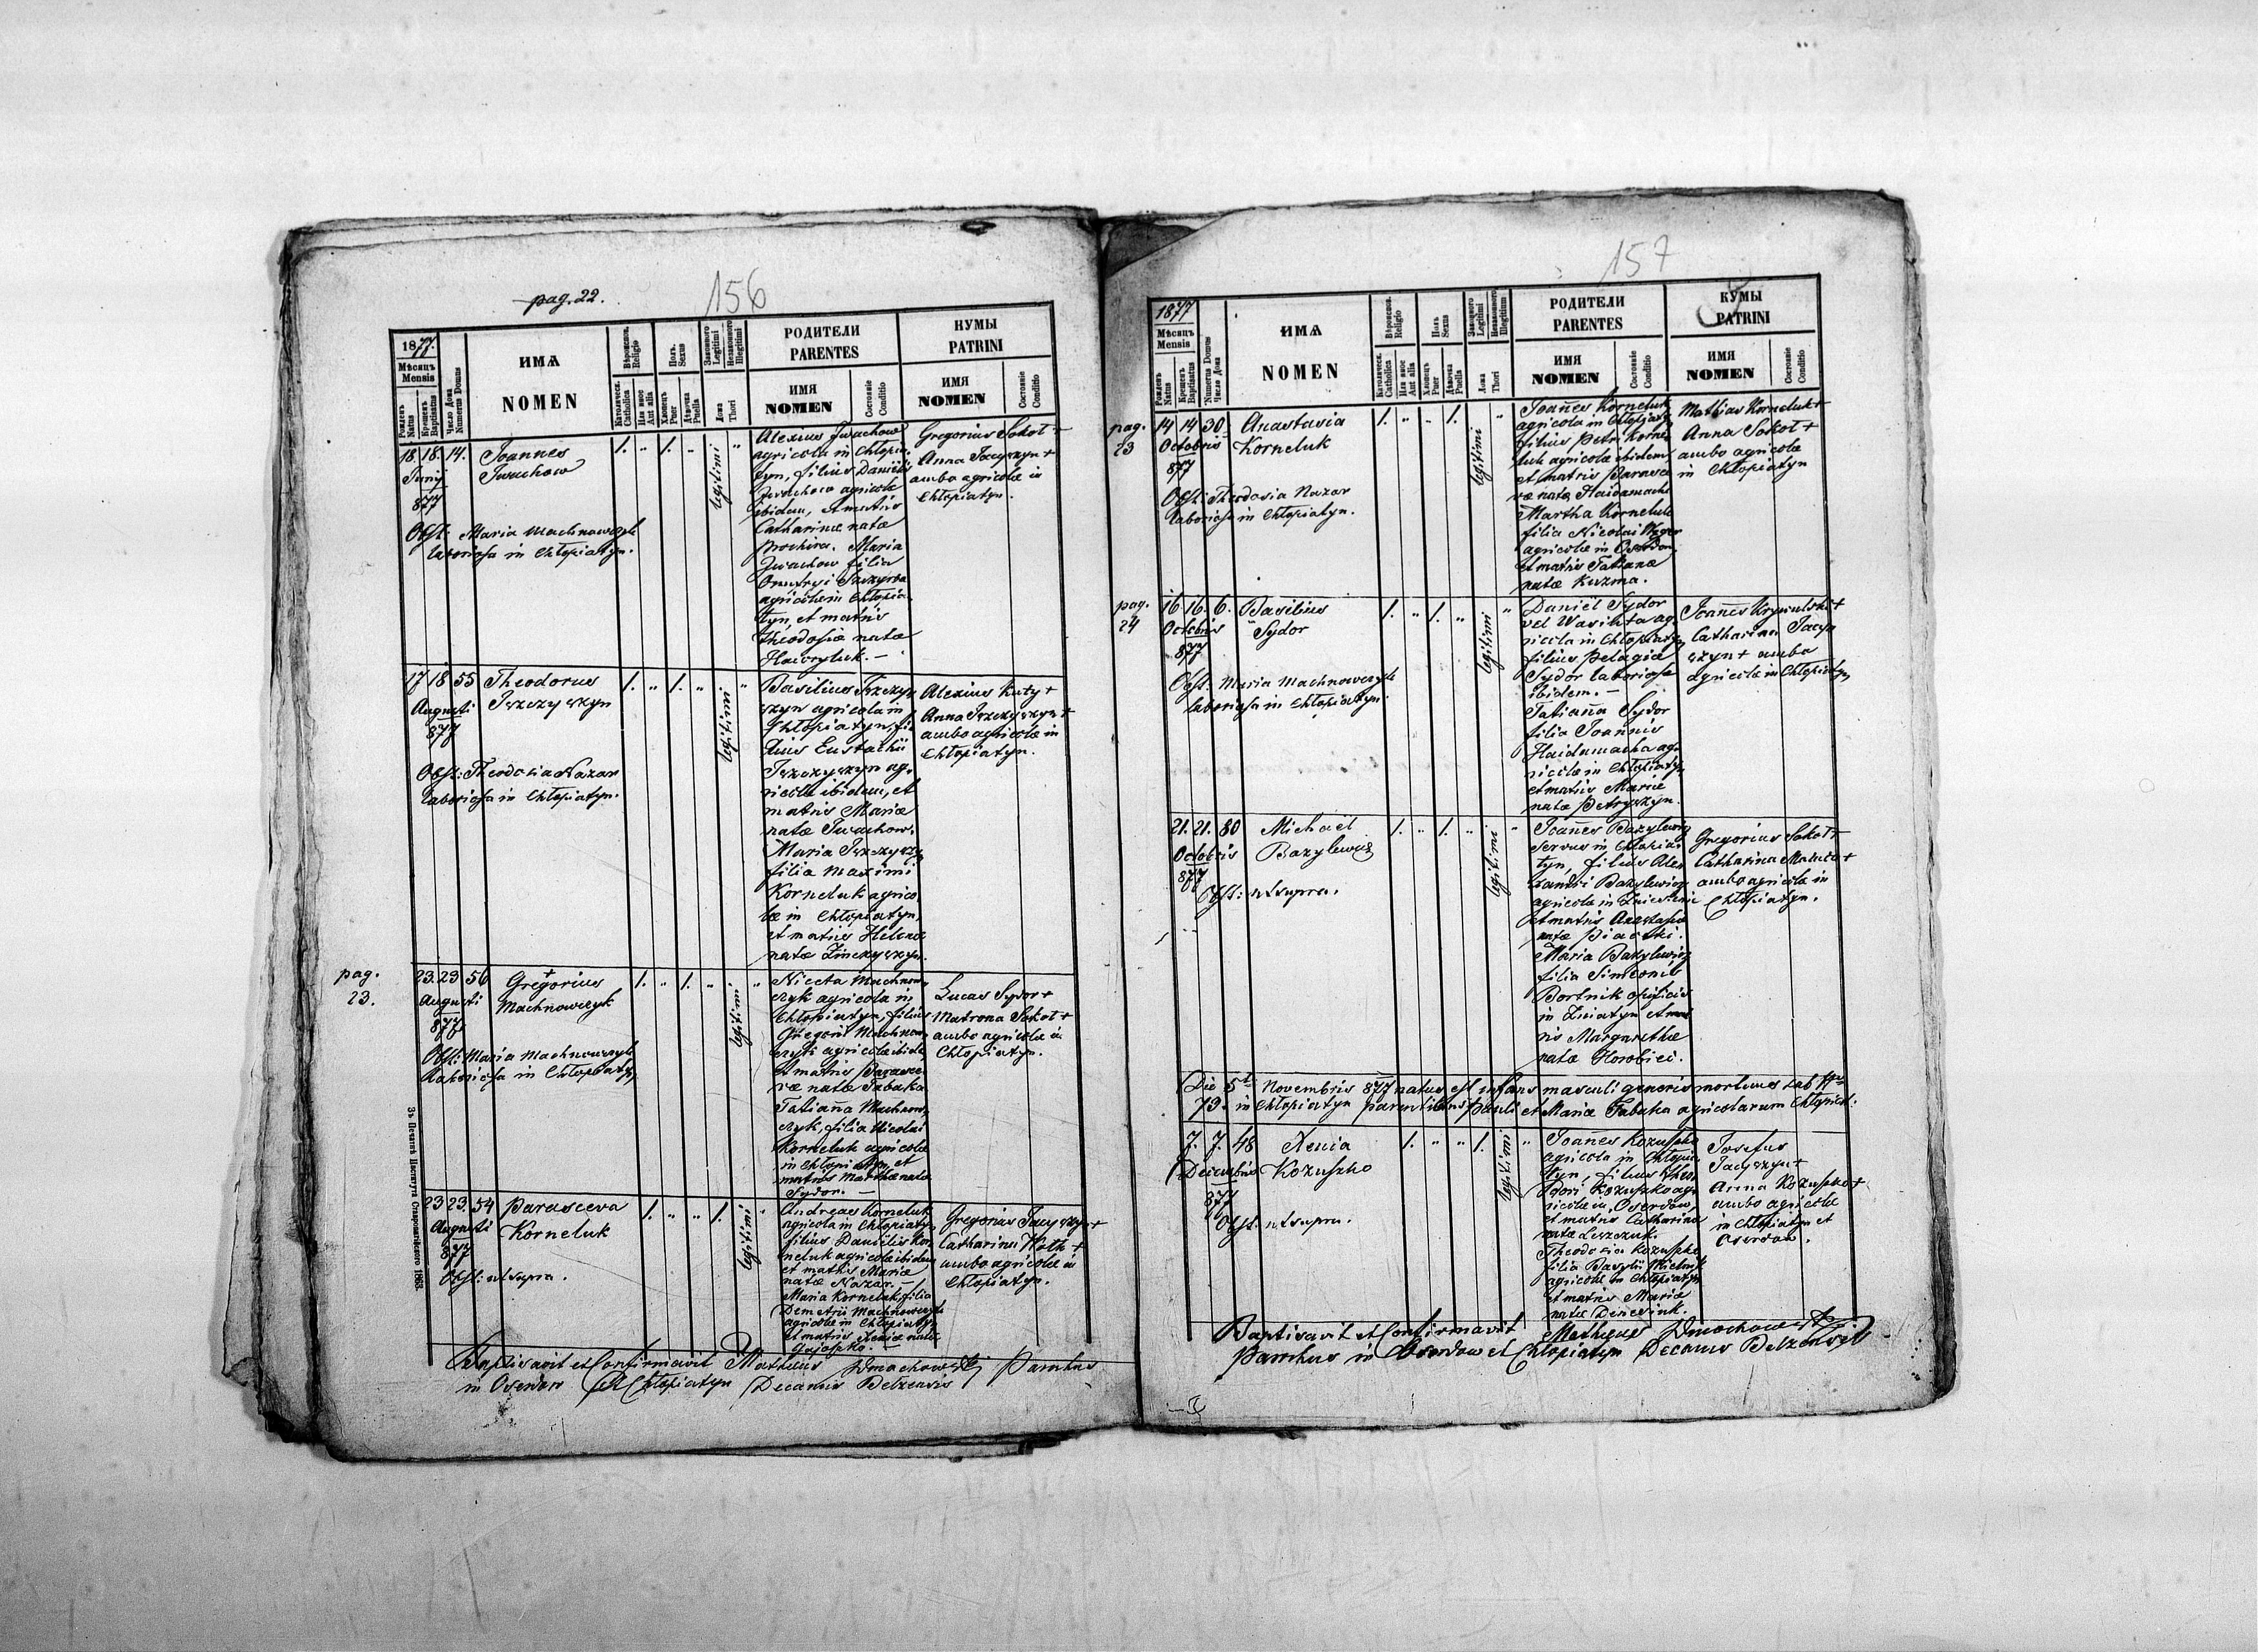 pag. 22.
156
1877.
Мѣсяцъ
Mensis
Рожденъ
Natus
Крещенъ
Baptisatus
Число Дома
Numerus Domus
ИМѦ
NOMEN
Вѣроиспов.
Religio
Католическ.
Catholica
Или иное
Aut alia
Полъ.
Sexus
Хлопецъ
Puer
Дѣвочка
Puella
Законного
Legitimi
Незаконного
Illegitimi
Ложа
Thori
РОДИТЕЛИ
PARENTES
ИМЯ
NOMEN
Состояніе
Conditio
КУМЫ
PATRINI
ИМЯ
NOMEN
Состояніе
Conditio
18. 18. 14.
Junij
877
Joannes
Iwachow
1. „ 1. „
legitimi „
Obst. Maria Machnowczyk
laboriosa in Chłopiatyn.
Alexius Iwachow
agricola in Chłopia-
tyn, filius Danielis
Iwachow agricolæ
ibidem, et matris
Catharinæ natæ
Maria
Iwachow filia
agricolæ in Chłopia-
tyn, et matris
Theodosiæ natæ
Hawryluk. —
Gregorius Sokoł +
Anna Jacyszyn +
ambo agricolæ in
Chłopiatyn.
17 18 55
Augusti
877
Theodorus
Iszczyszyn
1. „ 1. „
legitimi „
Obst: Theodosia Nazar
laboriosa in Chłopiatyn.
Basilius Iszczy-
szyn agricola in
Chłopiatyn, fi-
lius Eustachii
Iszczyszyn ag-
ricolæ ibidem, et
matris Mariæ
natæ Iwachow.
Maria Iszczyszyn
filia Maximi
Korneluk agrico-
læ in Chłopiatyn,
et matris Helenæ
natæ
Alexius Kuty +
Anna Iszczyszyn +
ambo agricolæ in
Chłopiatyn.
pag.
23.
23. 23 56
Augusti
877
Gregorius
Machnowczyk
1. „ 1. „
legitimi „
Obst: Maria Machnowczyk
laboriosa in Chłopiatyn
Niceta Machnow-
czyk agricola in
Chłopiatyn, filius
Gregorii Machnow-
czyk agricolæ ibidem
et matris Parasce-
væ natæ Tabaka
Tatianna Machnow-
czyk, filia Nicolai
Korneluk agricolæ
in Chłopiatyn, et
matris Marthæ natæ
Sydor. —
Lucas Sydor +
Matrona Sokoł +
ambo agricolæ in
Chłopiatyn.
23 23. 54
Augusti
877
Parasceva
Korneluk
1. „ „ 1.
legitimi „
Obst: ut supra.
Andreas Korneluk
agricola in Chłopiatyn
filius Danielis Kor-
neluk agricolæ ibidem
et matris Mariæ
natæ Nazar. —
Maria Korneluk, filia
Demetrii Machnowczyk
agricolæ in Chłopiatyn
et matris Xeniæ natæ
Gregorius Jacyszyn +
Catharina Woth +
ambo agricolæ in
Chłopiatyn.
Baptisavit et Confirmavit Matheus Dmochowski Parochus
in Oserdow et Chłopiatyn Decanus Belzensis
Зъ Печатнѣ Института Ставропигійского 1863.
157
1877
Мѣсяцъ
Mensis
Рожденъ
Natus
Крещенъ
Baptisatus
Numerus Domus
Число Дома
ИМѦ
NOMEN
Вѣроиспов.
Religio
Католическ.
Catholica
Или иное
Aut alia
Полъ
Sexus
Хлопецъ
Puer
Дѣвочка
Puella
Законного
Legitimi
Незаконного
Illegitimi
Ложа
Thori
РОДИТЕЛИ
PARENTES
ИМЯ
NOMEN
Состояніе
Conditio
КУМЫ
PATRINI
ИМЯ
NOMEN
Состояніе
Conditio
pag.
23
14 14 30
Octobris
877
Anastasia
Korneluk
1. „ „ 1.
legitimi „
Obst: Theodosia Nazar
laboriosa in Chłopiatyn.
Joannes Korneluk
agricola in Chłopiatyn
filius Petri Korne-
luk agricolæ ibidem
et matris Parasce-
væ natæ Haidamacha
Martha Korneluk
filia Nicolai
agricolæ in Oserdow
et matris Tatianæ
natæ Kuzma.
Mathias Korneluk +
Anna Sokoł +
ambo agricolæ
in Chłopiatyn
pag.
24
16 16. 6.
Octobris
877
Basilius
Sydor
1. „ 1. „
legitimi „
Obst: Maria Machnowczyk
laboriosa in Chłopiatyn.
Daniel Sydor
vel Wasiuta ag-
ricola in Chłopiatyn,
filius Pelagiæ
Sydor laboriosæ
ibidem. —
Tatianna Sydor
filia Joannis
Haidamacha ag-
ricolæ in Chłopiatyn
et matris Mariæ
natæ Petryszyn.
Joannes
Catharina Jacy-
szyn + ambo
agricolæ in Chłopiatyn
21. 21. 80
Octobris
877
Michaël
Bazylewicz
1. „ 1. „
legitimi „
Obst: ut supra.
Joannes Bazylewicz
servus in Chłopia-
tyn, filius Alex-
andri Bazylewicz
agricolæ in
et matris Anastasiæ
natæ
Maria Bazylewicz
filia Simeonis
Bortnik opificis
in Żniatyn et mat-
ris Margarethæ
natæ Horobiei.
Gregorius Sokoł +
Catharina +
ambo agricolæ in
Chłopiatyn.
Die 5ta Novembris 877 natus est infans masculi generis mortuus sub Nro
79. in Chłopiatyn parentibus Pauli et Mariæ Tabaka agricolarum Chłopiat:
7. 7. 48
Decembris
877
Xenia
Kozuszko
1. „ „ 1.
legitimi „
Obst. ut supra.
Joannes Kozuszko
agricola in Chłopia-
tyn, filius Theo-
dori Kozuszko ag-
ricolæ in Oserdow,
et matris Catharinæ
natæ Leszczuk.
Theodosia Kozuszko
filia Basylii
agricolæ in Chłopiatyn
et matris Mariæ
natæ
Josefus
Jacyszyn +
Anna Kozuszko +
ambo agricolæ
in Chłopiatyn et
Oserdow.
Baptisavit et Confirmavit Matheus Dmochowski
Parochus in Oserdow et Chłopiatyn Decanus Belzensis